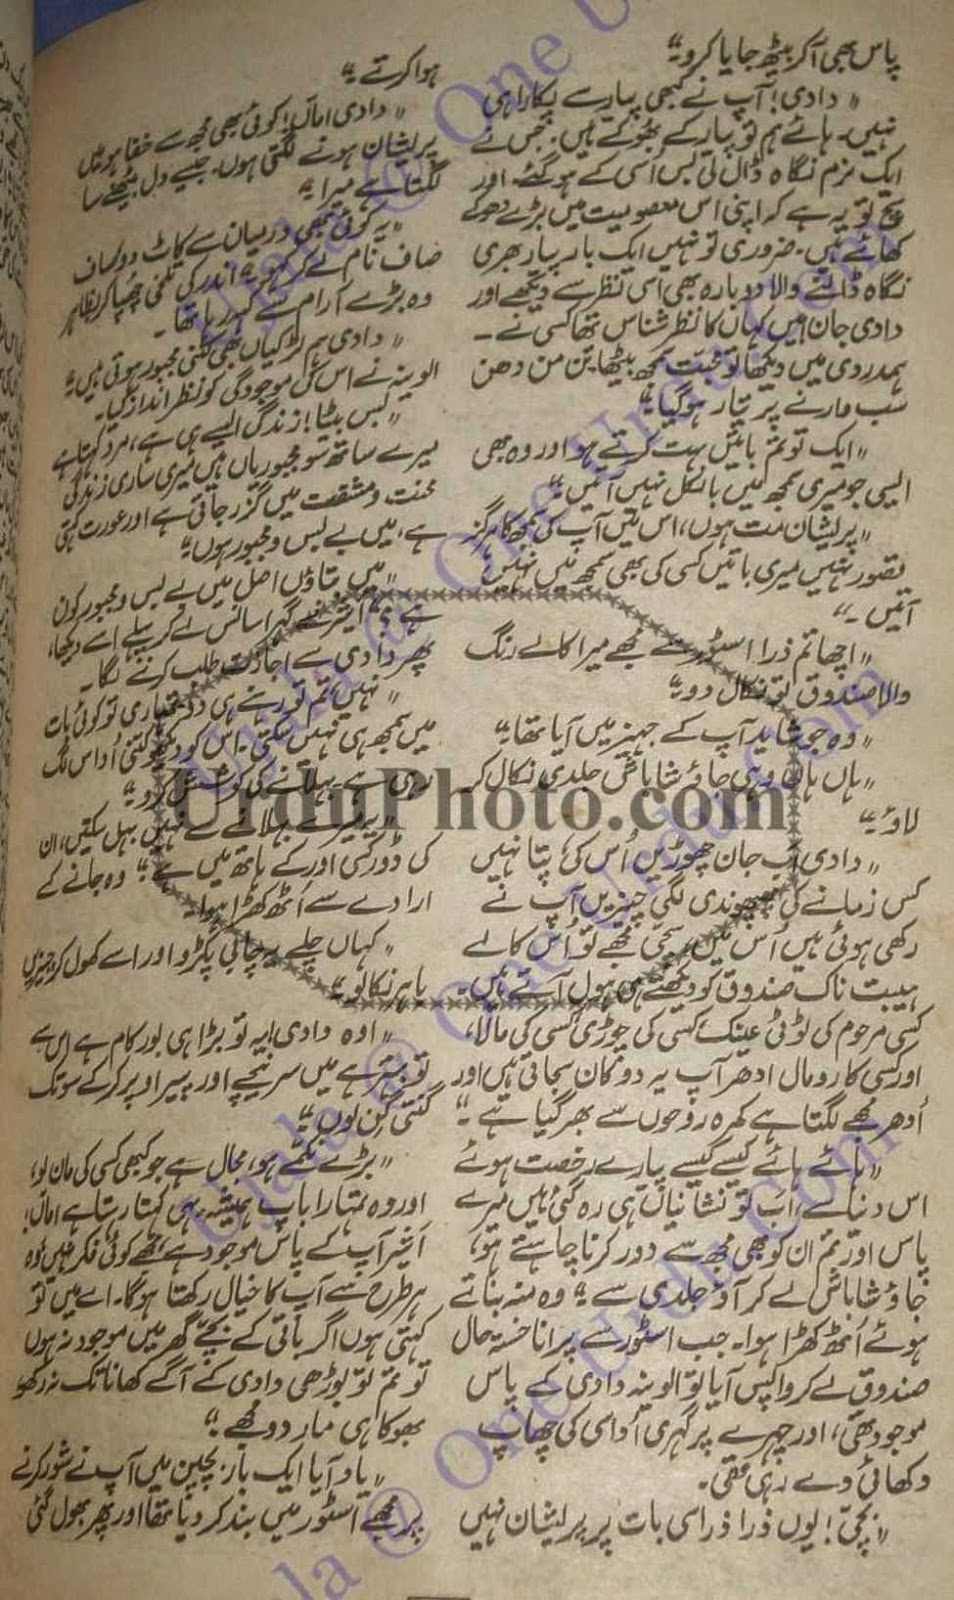 پاس بھی آکر بیٹھ جایا کرو۔"
"دادی! آپ نے کبھی پیار سے پکارا ہی
نہیں۔ ہائے ہم تو پیار کے بھوکے ہیں۔ جس نے
ایک نرم نگاہ ڈال لی بس اسی کے ہوگئے۔ اور
سچ تو یہ ہے کہ اپنی اس معصومیت میں بڑے دھوکے
کھائے ہیں۔ ضروری تو نہیں ایک بار پیار بھری
نگاہ ڈالنے والا دوبارہ بھی اسی نظر سے دیکھے اور
دادی جان میں کہاں کا نظر شناس تھا کسی نے
ہمدردی میں دیکھا تو محبت سمجھ بیٹھا تن من دھن
سب وارنے پر تیار ہوگیا۔"
"ایک تو تم باتیں بہت کرتے ہو اور وہ بھی
ایسی جو میری سمجھ میں بالکل نہیں آتیں۔"
"پریشان مت ہوں، اس میں آپ کی سمجھ کا ہرگز
قصور نہیں میری باتیں کسی کی بھی سمجھ میں نہیں
آتیں۔"
"اچھا تم ذرا اسٹور سے مجھے میرا کالے رنگ
والا صندوق تو نکال دو۔"
"وہ جو شاید آپ کے جہیز میں آیا تھا۔"
"ہاں ہاں وہی جاؤ شاباش جلدی نکال کر
لاؤ۔"
"دادی آپ جان چھوڑیں اُس کی پتا نہیں
کس زمانے کی پھپھوندی لگی چیزیں آپ نے
رکھی ہوئی ہیں اُس میں، سچی مجھے تو اُس کالے
ہیبت ناک صندوق کو دیکھتے ہی ہول آتے ہیں۔
کسی مرحوم کی ٹوٹی عینک کسی کی چوڑی کسی کی مالا،
اور کسی کا رومال ادھر آپ یہ دوکان سجاتی ہیں اور
اُدھر مجھے لگتا ہے کمرہ روحوں سے بھر گیا ہے۔"
"ہائے ہائے کیسے کیسے پیارے رخصت ہوئے
اس دنیا سے، اب تو نشانیاں ہی رہ گئی ہیں میرے
پاس اور تم ان کو بھی مجھ سے دور کرنا چاہتے ہو،
جاؤ شاباش لے کر آؤ جلدی سے۔" وہ منہ بناتے
ہوئے اُٹھ کھڑا ہوا۔ جب اسٹور سے پرانا خستہ حال
صندوق لے کر واپس آیا تو الوینہ دادی کے پاس
موجود تھی، اور چہرے پر گہری اُداسی کی چھاپ
دکھائی دے رہی تھی۔
"بچی! یوں ذرا ذرا سی بات پر پریشان نہیں
ہوا کرتے۔"
"دادی اماں! کوئی بھی مجھ سے خفا ہو میں
پریشان ہونے لگتی ہوں۔ جیسے دل بیٹھنے سا
لگتا ہے میرا۔"
"یہ کوئی بھی درمیان سے کاٹ دو صاف
صاف نام لے کر کہو۔" اندر کی تلخی چھپا کر بظاہر
وہ بڑے آرام سے کہہ رہا تھا۔
"دادی ہم لڑکیاں بھی کتنی مجبور ہوتی ہیں۔"
الوینہ نے اس کی موجودگی کو نظر انداز کیا۔
"بس بیٹا! زندگی ایسے ہی ہے، مرد کہتا ہے
میرے ساتھ سو مجبوریاں ہیں میری ساری زندگی
محنت و مشقت میں گزر جاتی ہے اور عورت کہتی
ہے، میں بے بس و مجبور ہوں۔"
"میں بتاؤں اصل میں بے بس و مجبور کون
ہے؟" اشیر نے گہرا سانس لے کر پہلے اسے دیکھا،
پھر دادی سے اجازت طلب کرنے لگا۔
"نہیں تم تو رہنے ہی دو تمہاری تو کوئی بات
میں سمجھ ہی نہیں سکتی۔ اس کو دیکھو کتنی اُداس لگ
رہی ہے بہلانے کی کوشش کرو۔"
"یہ میرے بہلانے سے نہیں بہل سکتیں، ان
کی ڈور کسی اور کے ہاتھ میں ہے۔" وہ جانے کے
ارادے سے اُٹھ کھڑا ہوا۔
"کہاں چلے یہ چابی پکڑو اور اسے کھول کر چیزیں
باہر نکالو۔"
"اوہ دادی! یہ تو بڑا ہی بور کام ہے اس سے
تو بہتر ہے میں سر نیچے اور پیر اوپر کر کے سو تک
گنتی گن لوں۔"
"بڑے نکمے ہو، مجال ہے جو کبھی کسی کی مان لو،
اور وہ تمہارا باپ ہمیشہ یہی کہتا رہتا ہے اماں!
اشیر آپ کے پاس موجود ہے مجھے کوئی فکر نہیں وہ
ہر طرح سے آپ کا خیال رکھتا ہوگا۔ اے میں تو
کہتی ہوں اگر باقی کے بچے گھر میں موجود نہ ہوں
تو تم تو بوڑھی دادی کے آگے کھانا تک نہ رکھو
بھوکا ہی مار دو مجھے۔"
"یاد آیا ایک بار بچپن میں آپ نے شور کرنے
پر مجھے اسٹور میں بند کر دیا تھا اور پھر بھول گئی
UrduPhoto.com
Ujala @ One Urdu.Com